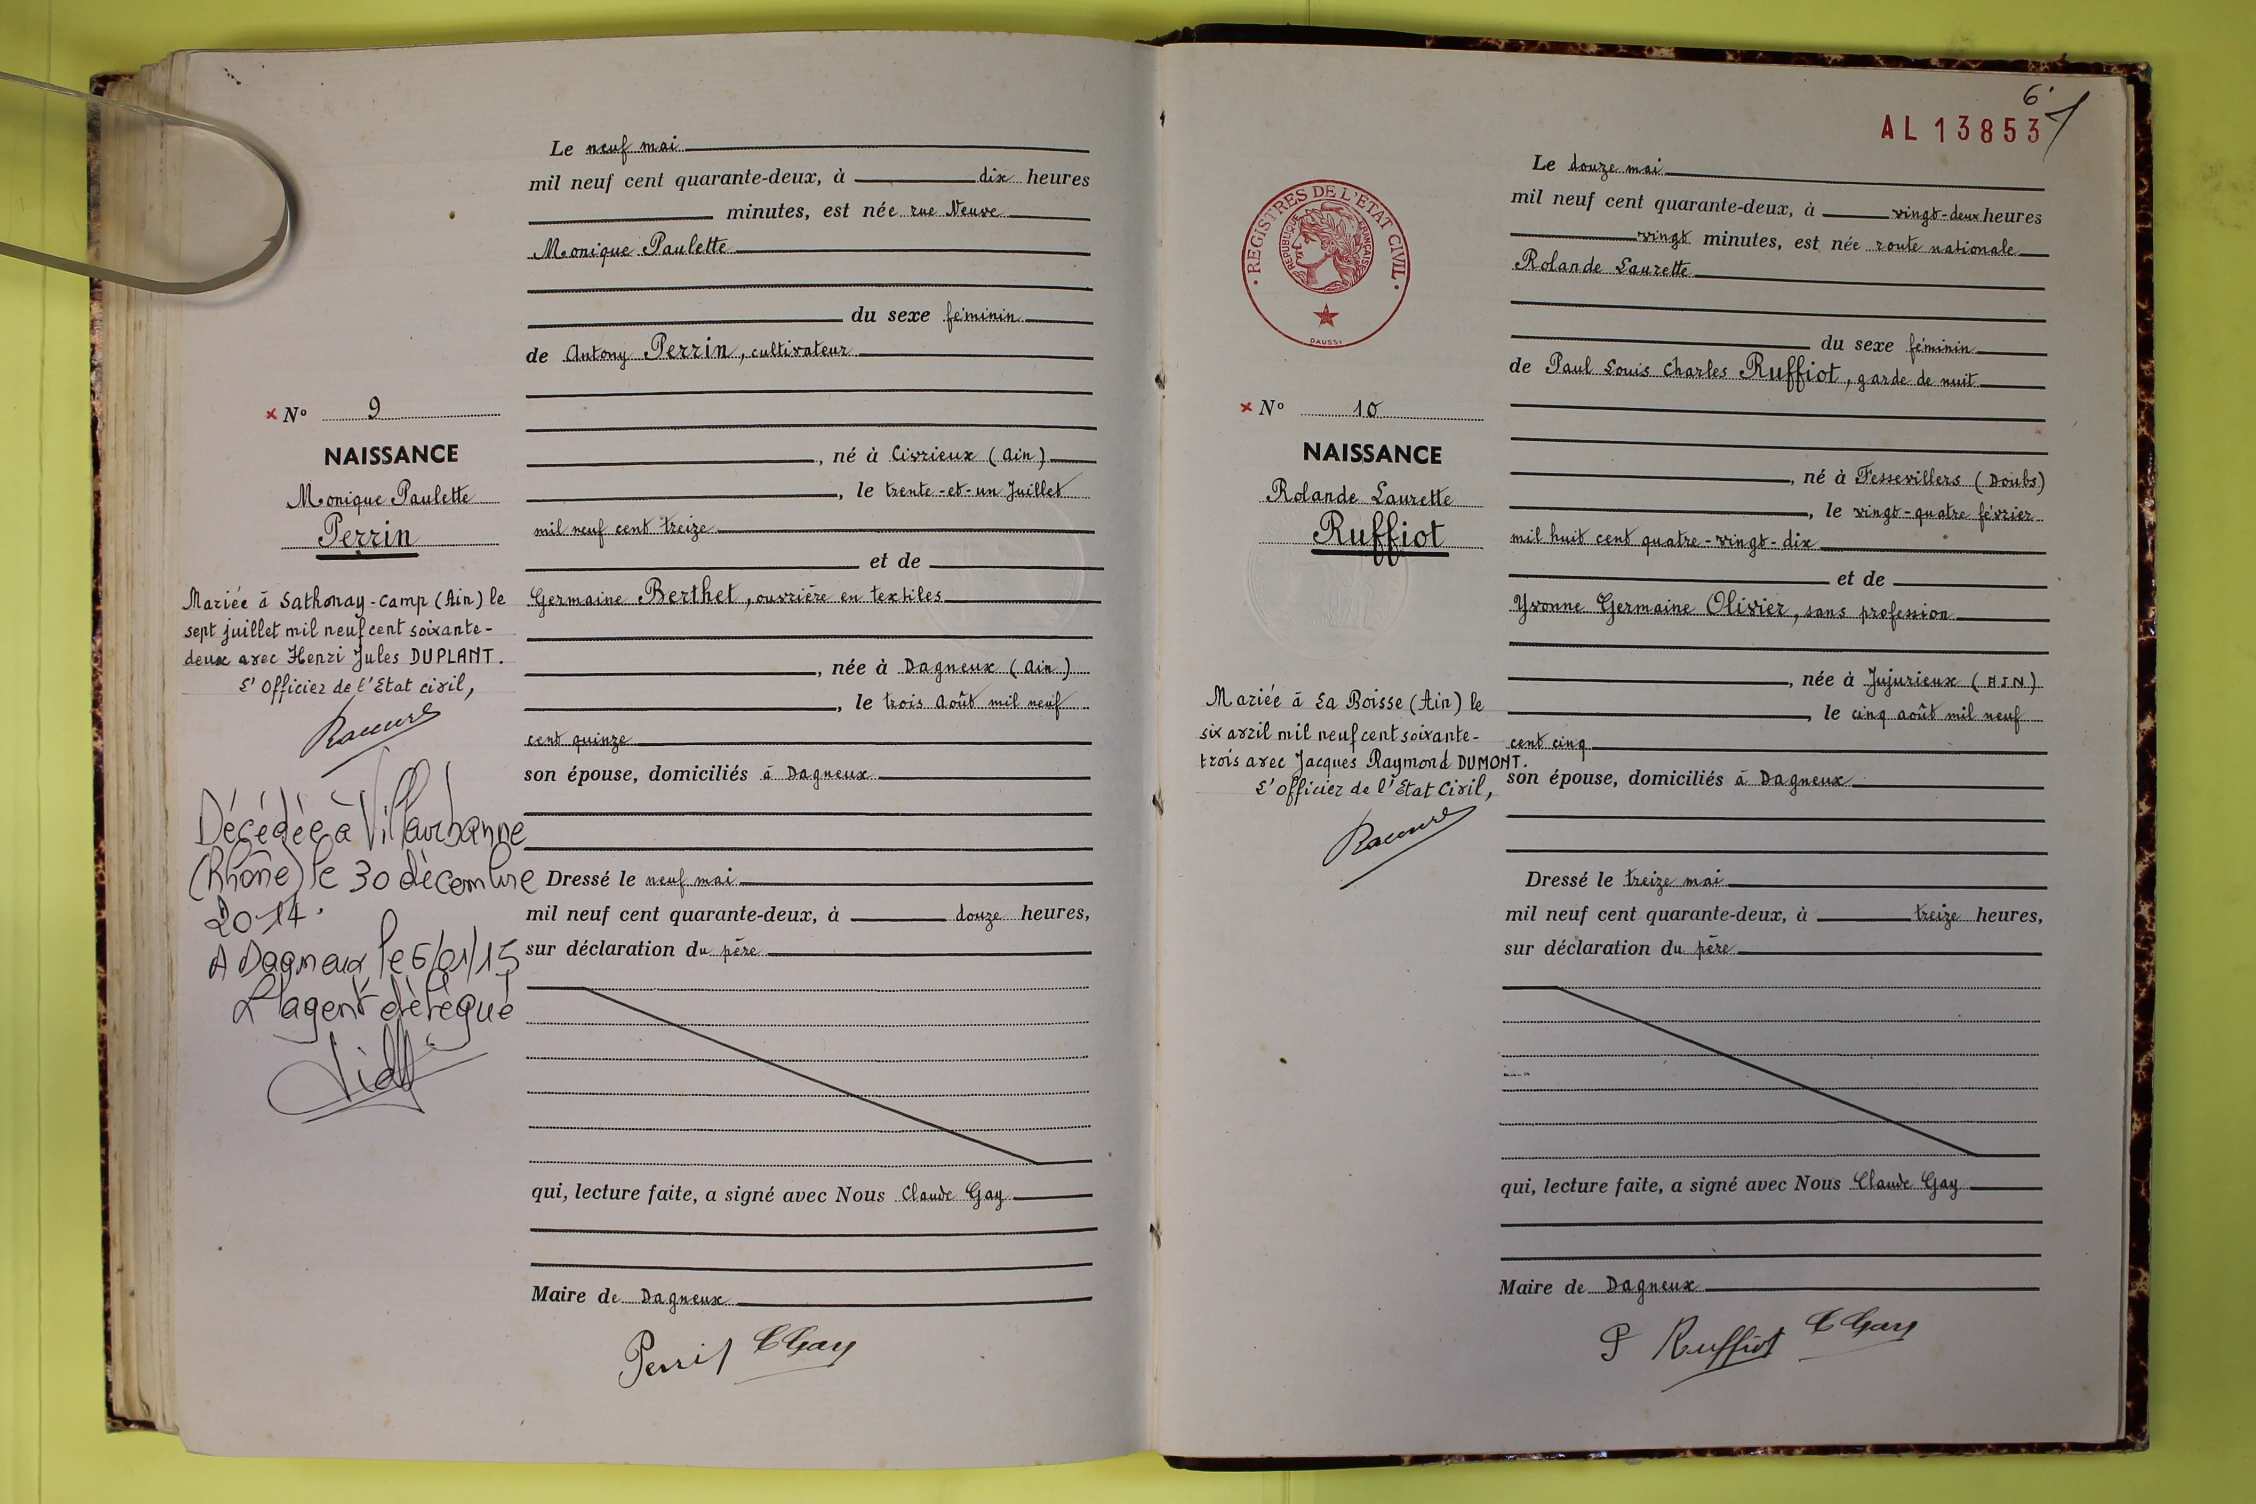 Le neuf mai
mil neuf cent quarante-deux, à dix heures
minutes, est née rue Neuve
Monique Paulette
du sexe féminin
de Antony Perrin, cultivateur
, né à Civrieux (Ain)
, le trente-et-un Juillet
mil neuf cent treize
et de
Germaine Berthet, ouvrière en textiles
, née à Dagneux (Ain)
, le trois Août mil neuf
cent quinze
son épouse, domiciliés à Dagneux
Dressé le neuf mai
mil neuf cent quarante-deux, à douze heures,
sur déclaration du père
qui, lecture faite, a signé avec Nous Claude Gay
Maire de Dagneux
Perrin CGay
× Nº 9
NAISSANCE
Monique Paulette
Perrin
Mariée à Sathonay-Camp (Ain) le
sept juillet mil neuf cent soixante-
deux avec Henri Jules DUPLANT.
L'Officier de l'Etat civil,
Décédée à Villeurbanne
(Rhône) le 30 décembre
2014.
A Dagneux le 6/01/15
L'agent délégué
6
AL 13853
REGISTRES DE L'ETAT CIVIL
REPUBLIQUE FRANÇAISE
DAUSSI
Le douze mai
mil neuf cent quarante-deux, à vingt-deux heures
vingt minutes, est née route nationale
Rolande Laurette
du sexe féminin
de Paul Louis Charles Ruffiot, garde de nuit
, né à Fessevillers (Doubs)
, le vingt-quatre février
mil huit cent quatre-vingt-dix
et de
Yvonne Germaine Olivier, sans profession
, née à Jujurieux (AIN)
, le cinq août mil neuf
cent cinq
son épouse, domiciliés à Dagneux
Dressé le treize mai
mil neuf cent quarante-deux, à treize heures,
sur déclaration du père
qui, lecture faite, a signé avec Nous Claude Gay
Maire de Dagneux
P Ruffiot CGay
× Nº 10
NAISSANCE
Rolande Laurette
Ruffiot
Mariée à La Boisse (Ain) le
six avril mil neuf cent soixante-
trois avec Jacques Raymond DUMONT.
L'Officier de l'Etat Civil,